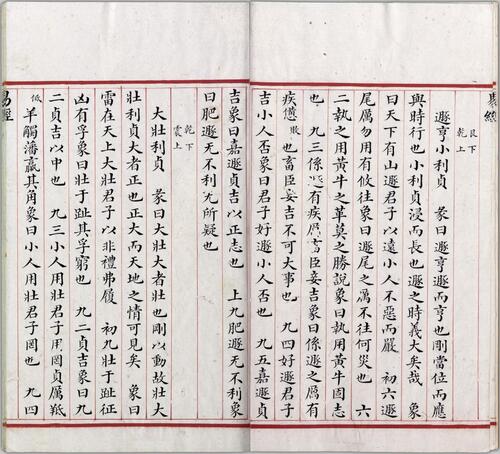 易經
艮下
乾上
遯亨小利貞 彖曰遯亨遯而亨也剛當位而應
與時行也小利貞浸而長也遯之時義大矣哉 象
曰天下有山遯君子以遠小人不惡而嚴 初六遯
尾厲勿用有攸往象曰遯尾之厲不往何災也 六
二執之用黃牛之革莫之勝說象曰執用黃牛固志
也 九三係遯有疾厲畜臣妾吉象曰係遯之厲有
疾憊敗也畜臣妾吉不可大事也 九四好遯君子
吉小人否象曰君子好遯小人否也 九五嘉遯貞
吉象曰嘉遯貞吉以正志也 上九肥遯无不利象
曰肥遯无不利无所疑也
乾下
震上
大壯利貞 彖曰大壯大者壯也剛以動故壯大
壯利貞大者正也正大而天地之情可見矣 象曰
雷在天上大壯君子以非禮弗履 初九壯于趾征
凶有孚象曰壯于趾其孚窮也 九二貞吉象曰九
二貞吉以中也 九三小人用壯君子用罔貞厲羝
低羊觸藩羸其角象曰小人用壯君子罔也 九四
易經